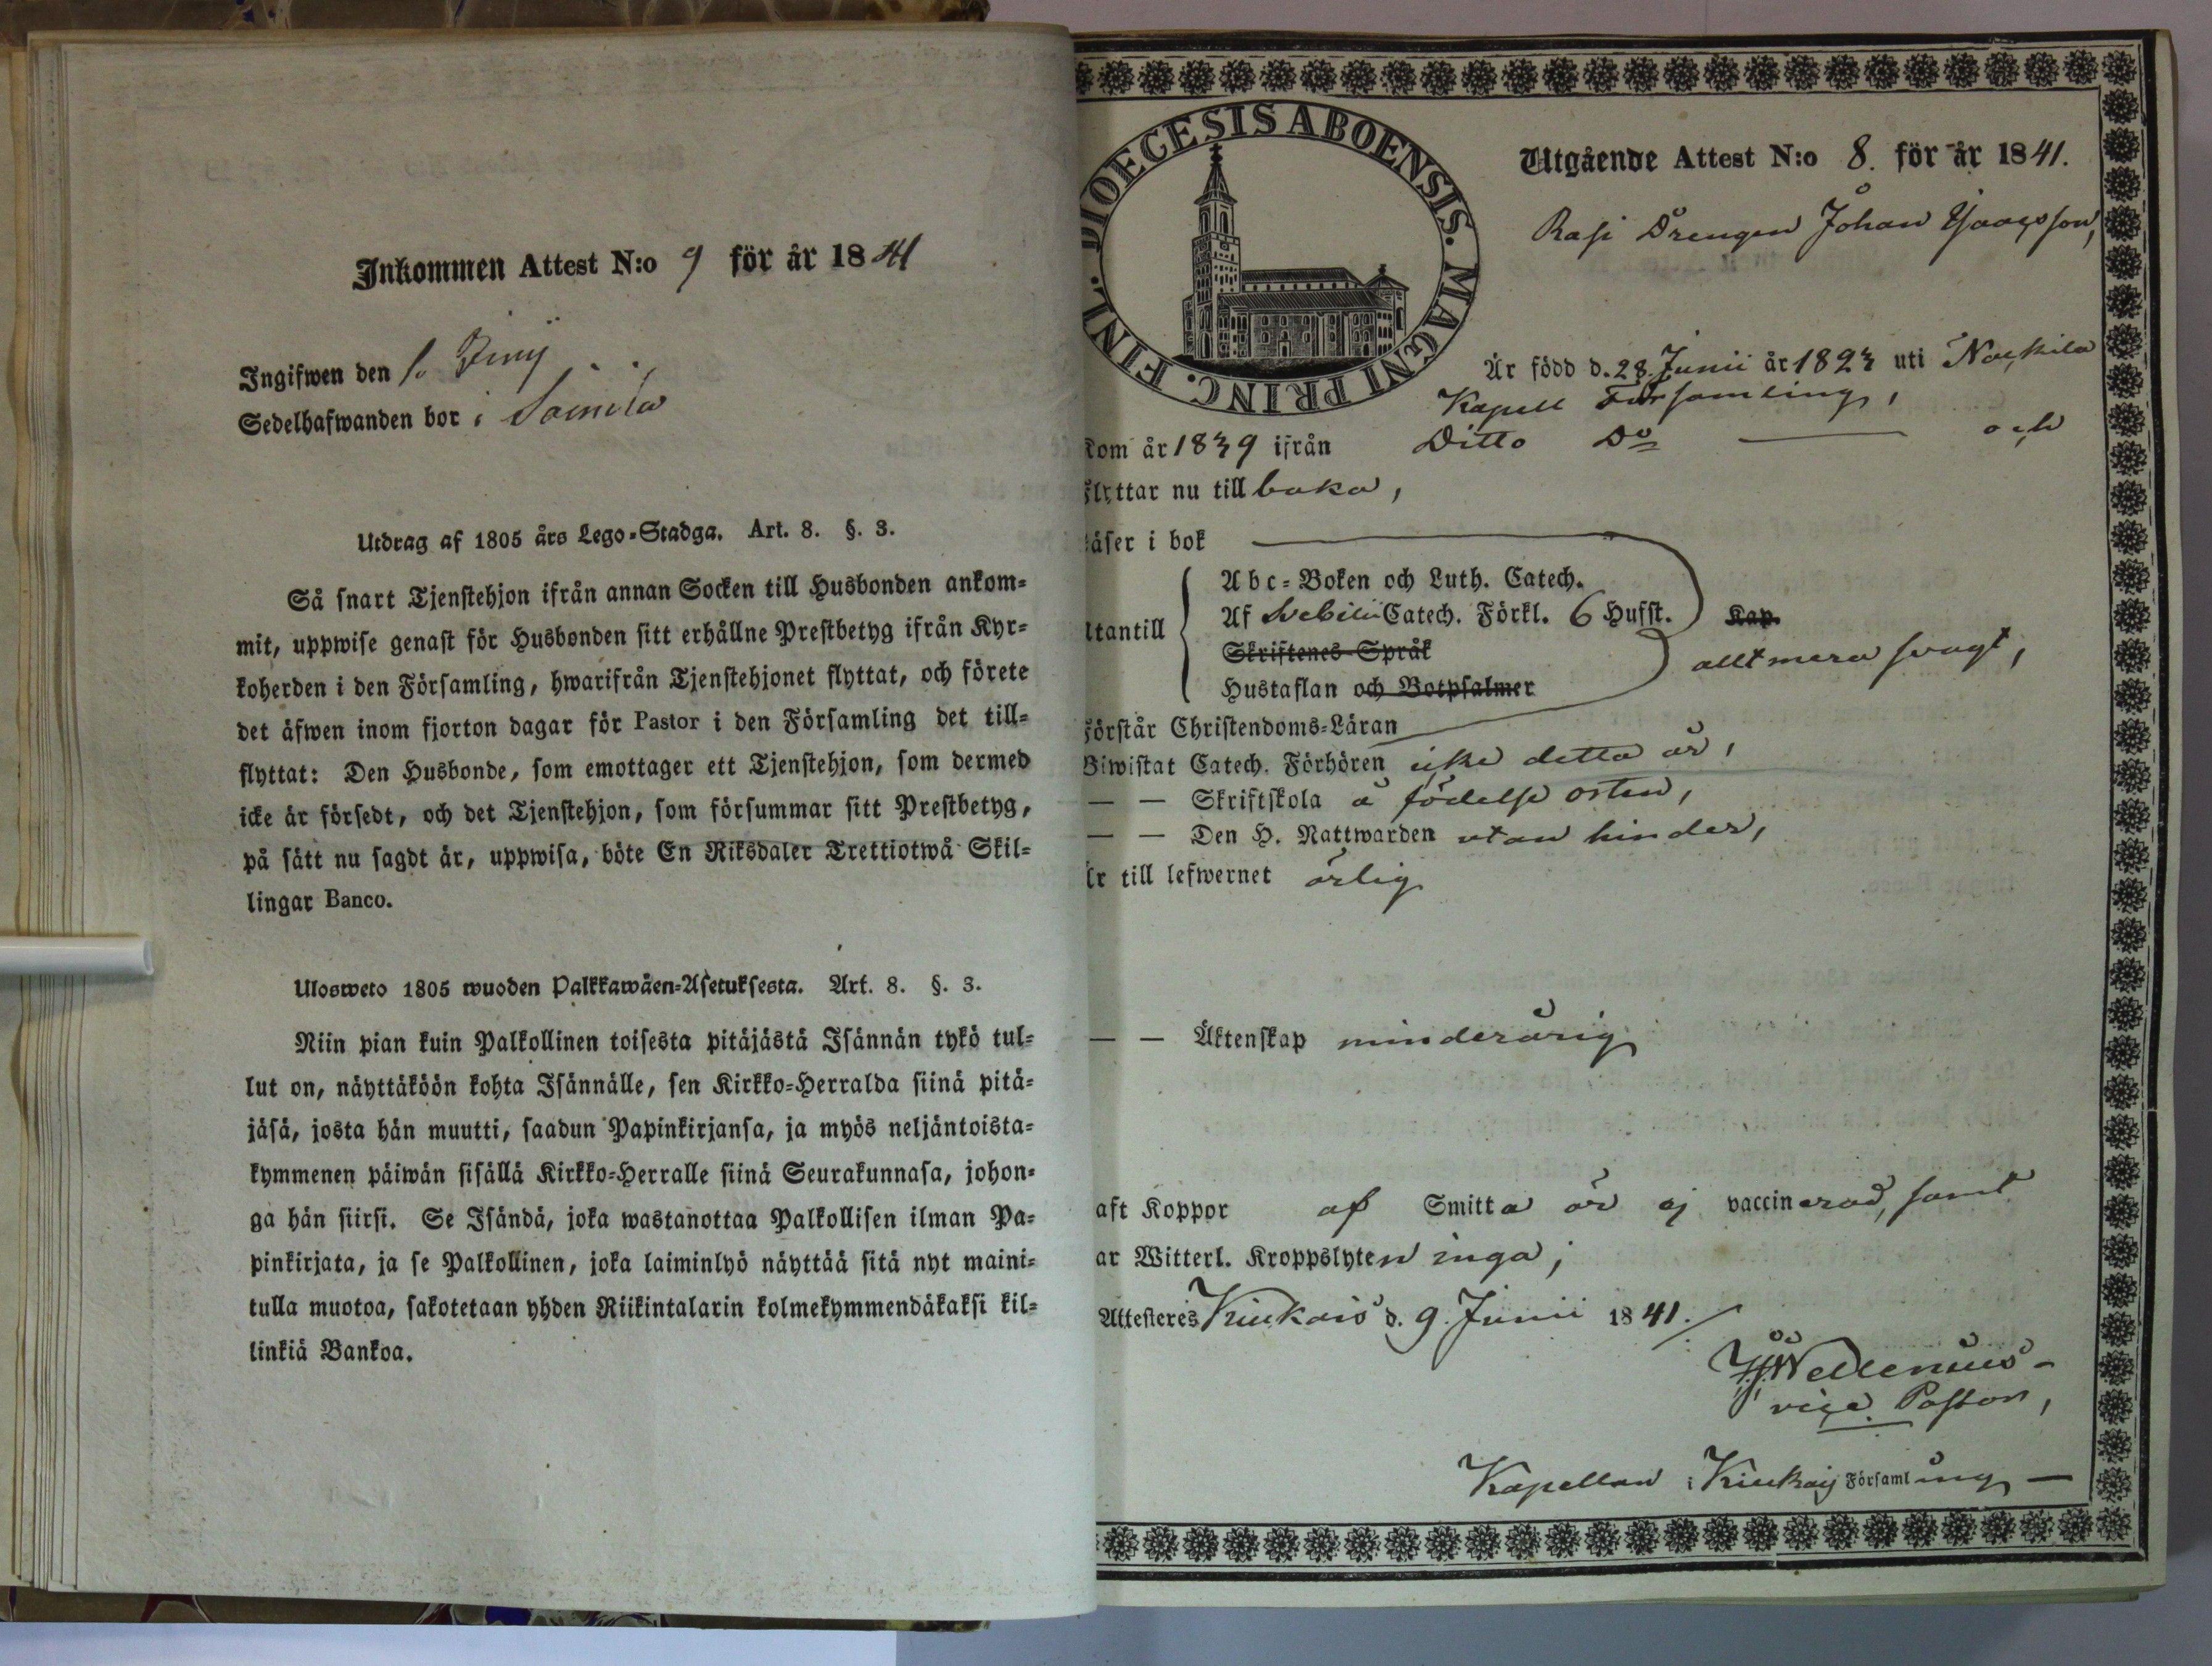 Inkommen Attest N:o 9 för år 1841
Ingifwen den
Sedelhafwanden bor i Soinila
Utdrag af 1805 års Lego-Stadga. Art. 8. §. 3.
Så snart Tjenstehjon ifrån annan Socken till Husbonden ankom-
mit, uppwise genast för Husbonden sitt erhållne Prestbetyg ifrån Kyr-
koherden i den Församling, hwarifrån Tjenstehjonet flyttat, och förete
det äfwen inom fjorton dagar för Pastor i den Församling det till-
flyttat: Den Husbonde, som emottager ett Tjenstehjon, som dermed
icke är försedt, och det Tjenstehjon, som försummar sitt Prestbetyg,
på sätt nu sagdt är, uppwisa, böte En Riksdaler Trettiotwå Skil-
lingar Banco.
Ulosweto 1805 wuoden Palkkawäen-Asetuksesta. Art. 8. §. 3.
Niin pian kuin Palkollinen toisesta pitäjästä Isännän tykö tul-
lut on, näyttäköön kohta Isännälle, sen Kirkko-Herralda siinä pitä-
jäsä, josta hän muutti, saadun Papinkirjansa, ja myös neljäntoista-
kymmenen päiwän sisällä Kirkko-Herralle siinä Seurakunnasa, johon-
ga hän siirsi. Se Isändä, joka wastanottaa Palkollisen ilman Pa-
pinkirjata, ja se Palkollinen, joka laiminlyö näyttää sitä nyt maini-
tulla muotoa, sakotetaan yhden Riikintalarin kolmekymmendäkaksi kil-
linkiä Bankoa.
DIOECESIS ABOENSIS. MAGNI PRINC. FINL.
Utgående Attest N:o 8. för år 1841.
Rasi Drengen Johan
Är född d. 28. Junii år 1823 uti Nackila
Kapell Församling,
kom år 1839 ifrån Ditto Do och
flyttar nu till baka,
läser i bok
Utantill
Abc-Boken och Luth. Catech.
Af Svebilii Catech. Förkl. 6 Hufst. Kap.
Skriftenes-Språk
allt mera svagt,
Hustaflan och Botpsalmer
Förstår Christendoms-Läran
Biwistat Catech. Förhören icke detta år,
— — Skriftskola å födelse orten,
— — Den H. Nattwarden utan hinder,
Är till lefwernet ärlig
— — Äktenskap minderårig
aft Koppor af Smitta är ej vaccinerad, samt
ar Witterl. Kroppslyten inga;
Attesteres Kiukais d. 9. Junii 1841.
Wellenius
vice Pastor,
Kapellan i Kiukais Församling —